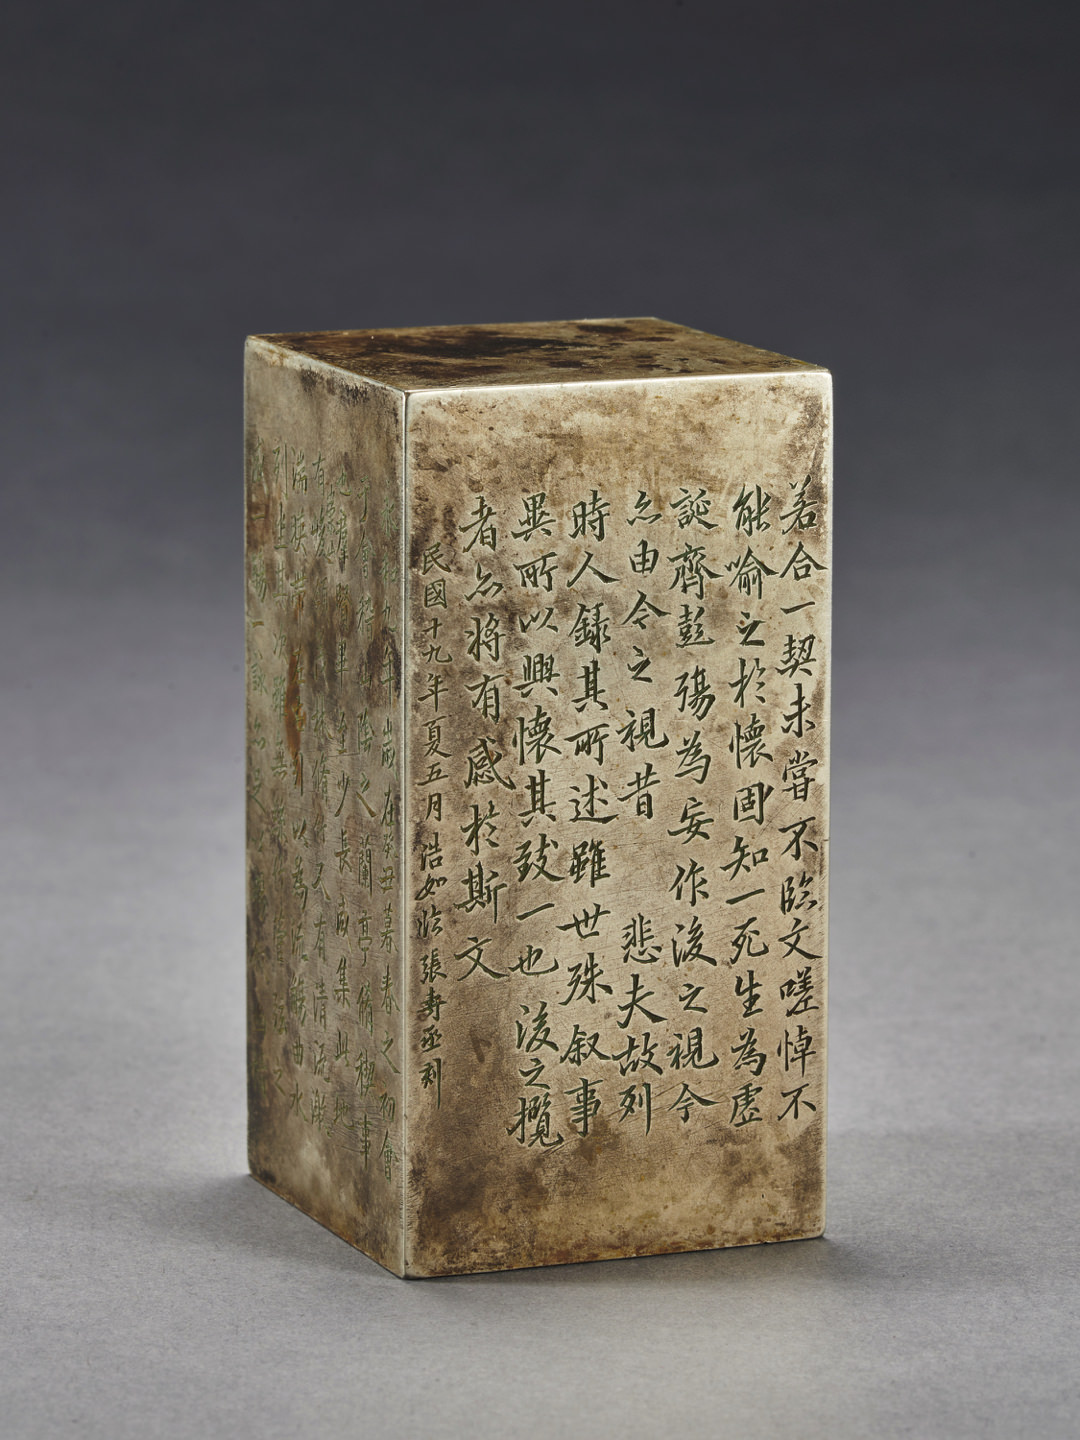 若合一契未嘗不臨文嗟悼不
能喻之於懷固知一死生為虛
誕齊彭殤為妄作後之視今
亦由今之視昔 悲夫故列
時人錄其所述雖世殊叙事
異所以興懷其致一也後之攬
者亦將有感於斯文
民國十九年夏五月浩如臨張壽丞刻
和九年歲在癸丑暮春之初會
于會稽山陰之蘭亭脩稧事
也羣賢畢至少長咸集此地
有峻領茂林脩竹又有清流激
湍映帶左右引以為流觴曲水
列坐其次雖無絲竹管弦之
盛一觴一詠亦足